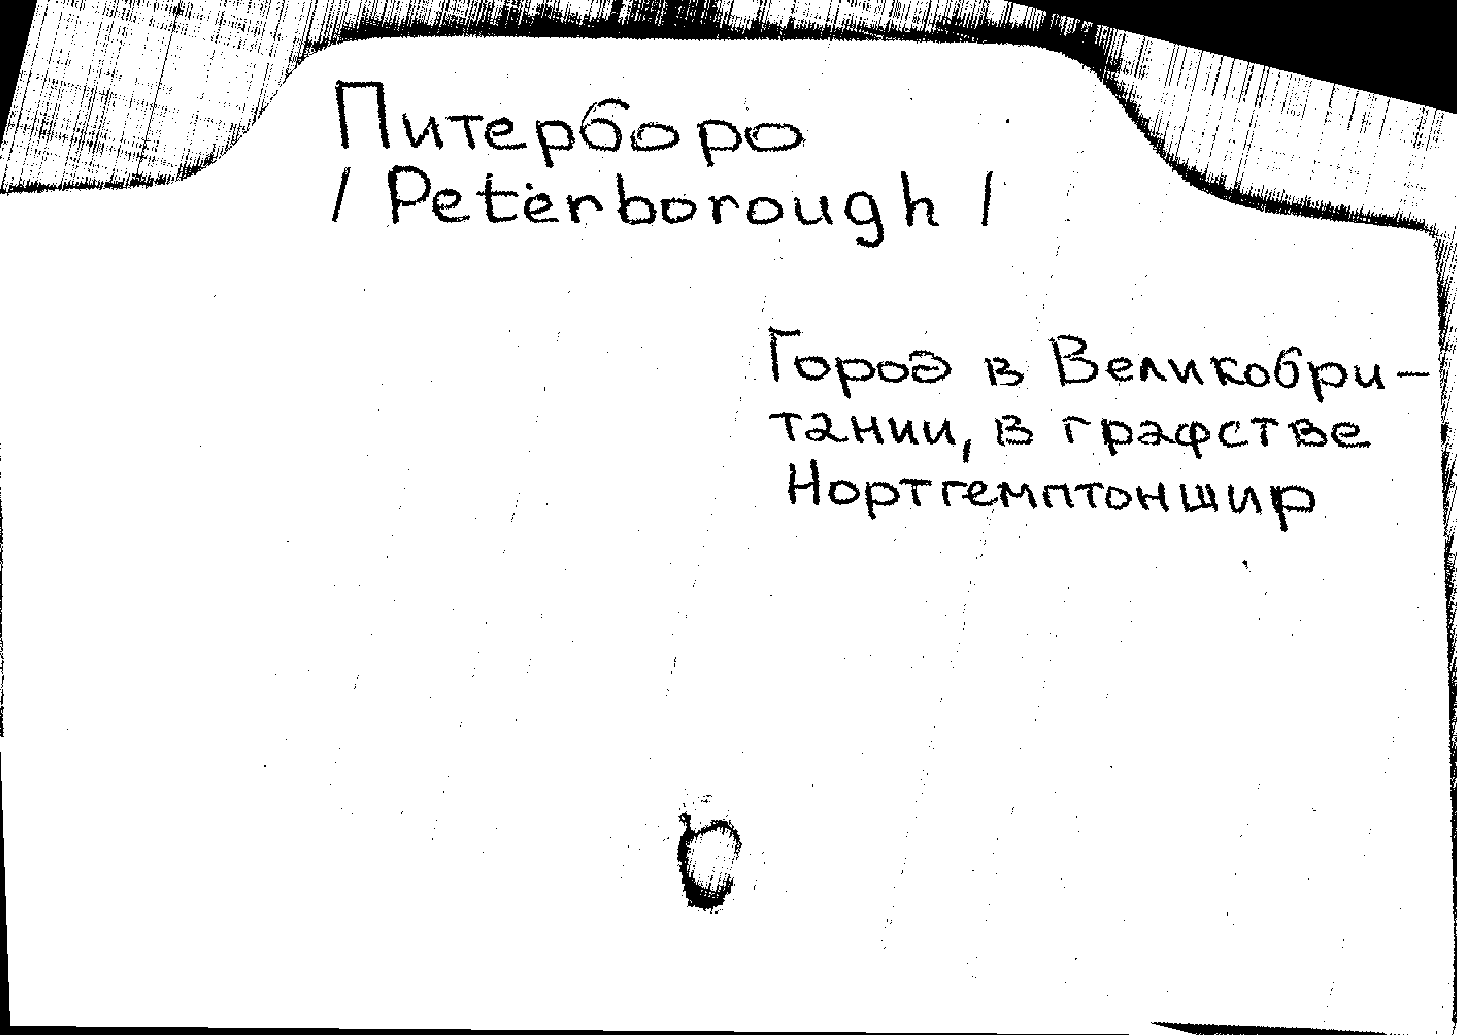 Питерборо
/ Peterborough /
Город в Великобри-
тании, в графстве
Нортгемптоншир